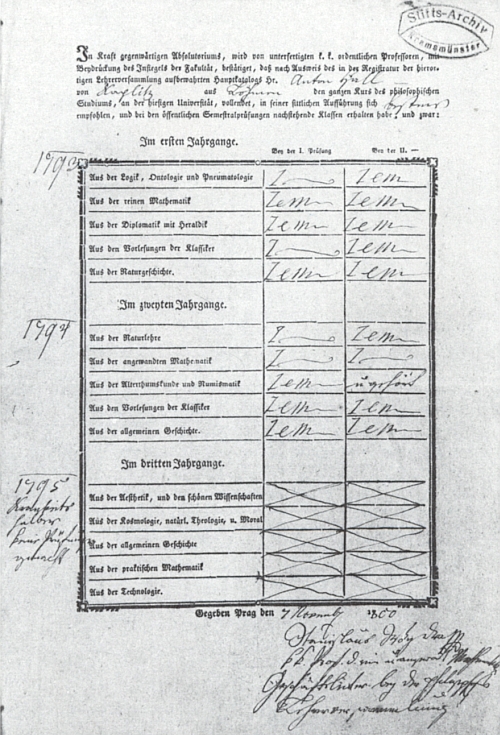 Stifts-Archiv
Kremsmünster
In Kraft gegenwärtigen Absolutoriums, wird von unterfertigten k. k. ordentlichen Professoren, mit
Beydrückung des Insiegels der Fakultät, bestätiget, daß nach Ausweis des in der Registratur der hieror-
tigen Lehrerversammlung aufbewahrten Hauptkatalogs Hr. Anton Hall
von Kaplitz aus Böhmen den ganzen Kurs des philosophischen
Studiums, an der hiesigen Universität, vollendet, in seiner sittlichen Aufführung sich bestens
empfohlen, und bei den öffentlichen Semestralprüfungen nachstehende Klassen erhalten habe, und zwar:
Im ersten Jahrgange. Bey der I. Prüfung Bey der II. —
1793
Aus der Logik, Ontologie und Pneumatologie I Iem
Aus der reinen Mathematik Iem Iem
Aus der Diplomatik mit Heraldik Iem Iem
Aus den Vorlesungen der Klassiker I Iem
Aus der Naturgeschichte. Iem Iem
Im zweyten Jahrgange.
1794
Aus der Naturlehre I Iem
Aus der angewandten Mathematik I I
Aus der Alterthumskunde und Numismatik Iem
Aus den Vorlesungen der Klassiker Iem Iem
Aus der allgemeinen Geschichte. Iem Iem
Im dritten Jahrgange.
1795
Krankheits
halber
keine Prüfung
gemacht
Aus der Aesthetik, und den schönen Wissenschaften
Aus der Kosmologie, natürl. Theologie, u. Moral
Aus der allgemeinen Geschichte
Aus der praktischen Mathematik
Aus der Technologie.
Gegeben Prag den 7 Novemb 1800
Stanislaus
k k Prof. d.
Geschäftsleiter bey der philosoph
Lehrerversammlung